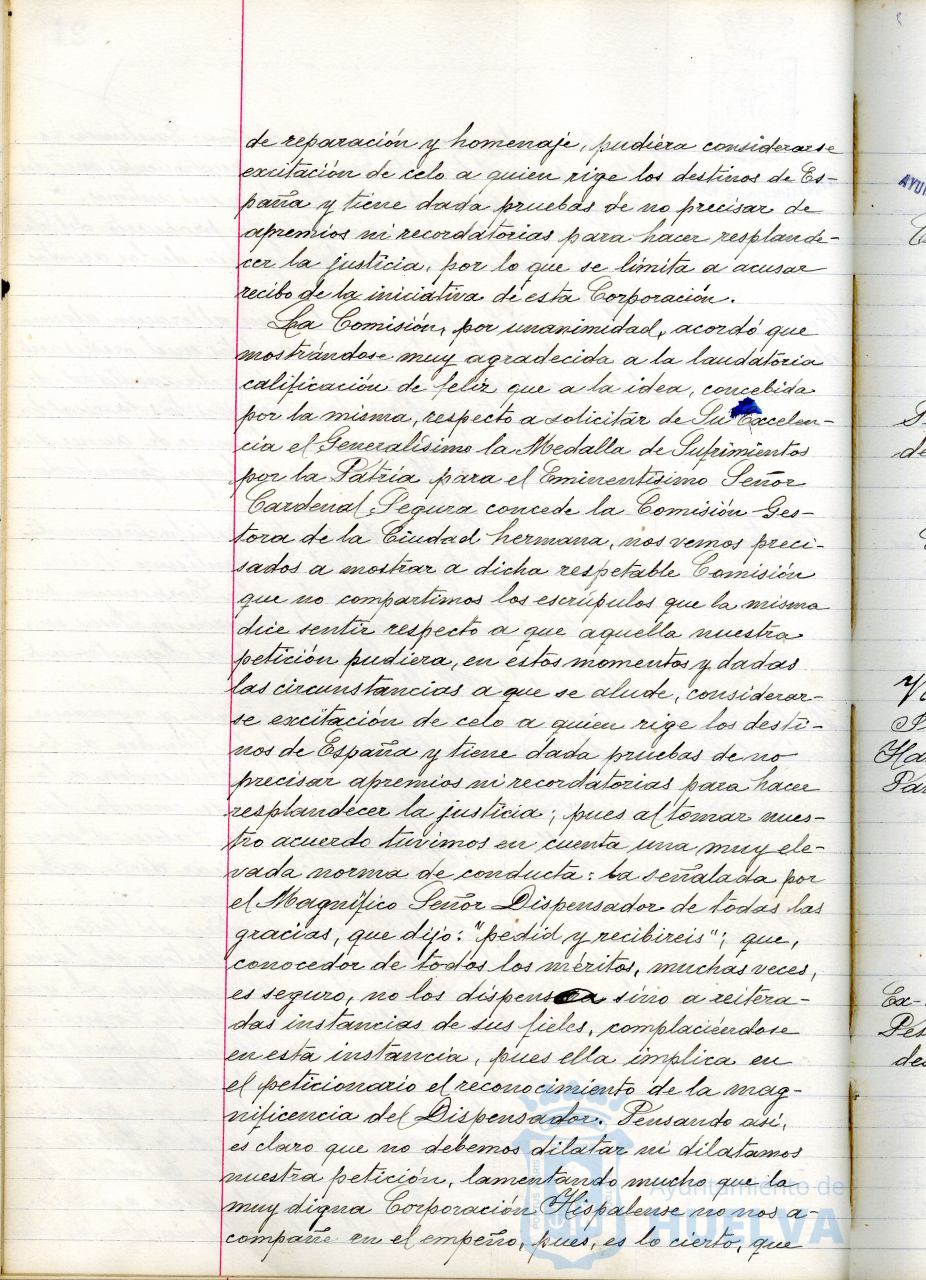 de reparación y homenaje, pudiera considerarse
excitación de celo a quien rige los destinos de Es-
paña y tiene dada pruebas de no precisar de
apremios ni recordatorias para hacer resplande-
cer la justicia, por lo que se limita a acusar
recibo de la iniciativa de esta Corporación.
La Comisión, por unanimidad, acordó que
mostrándose muy agradecida a la laudatoria
calificación de feliz que a la idea, concebida
por la misma, respecto a solicitar de Su Excelen-
cia el Generalísimo la Medalla de Sufrimientos
por la Patria para el Eminentísimo Señor
Cardenal Segura concede la Comisión Ges-
tora de la Ciudad hermana, nos vemos preci-
sados a mostrar a dicha respetable Comisión
que no compartimos los escrúpulos que la misma
dice sentir respecto a que aquella nuestra
petición pudiera, en estos momentos y dadas
las circunstancias a que se alude, considerar-
se excitación de celo a quien rige los desti-
nos de España y tiene dada pruebas de no
precisar apremios ni recordatorias para hacer
resplandecer la justicia; pues al tomar nues-
tro acuerdo tuvimos en cuenta una muy ele-
vada norma de conducta: la señalada por
el Magnífico Señor Dispensador de todas las
gracias, que dijo: "pedid y recibireis"; que,
conocedor de todos los méritos, muchas veces,
es seguro, no los dispensa sino a reitera-
das instancias de sus fieles, complaciéndose
en esta instancia, pues ella implica en
el peticionario el reconocimiento de la mag-
nificencia del Dispensador. Pensando así,
es claro que no debemos dilatar ni dilatamos
nuestra petición, lamentando mucho que la
muy digna Corporación Hispalense no nos a-
compañe en el empeño, pues, es lo cierto, que
Ayuntamiento de
HUELVA